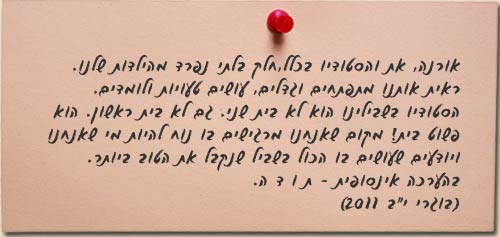 אורנה, את והסטודיו בכלל,חלק בלתי נפרד מהילדות שלנו.
ראית אותנו מתפתחים וגדלים, עושים טעויות ולומדים.
הסטודיו בשבילינו הוא לא בית שני. גם לא בית ראשון. הוא
פשוט בית! מקום שאנחנו מרגישים בו נוח להיות מי שאנחנו
ויודעים שעושים בו הכול בשביל שנקבל את הטוב ביותר.
בהערכה אינסופית - ת ו ד ה.
(בוגרי י"ב 2011)